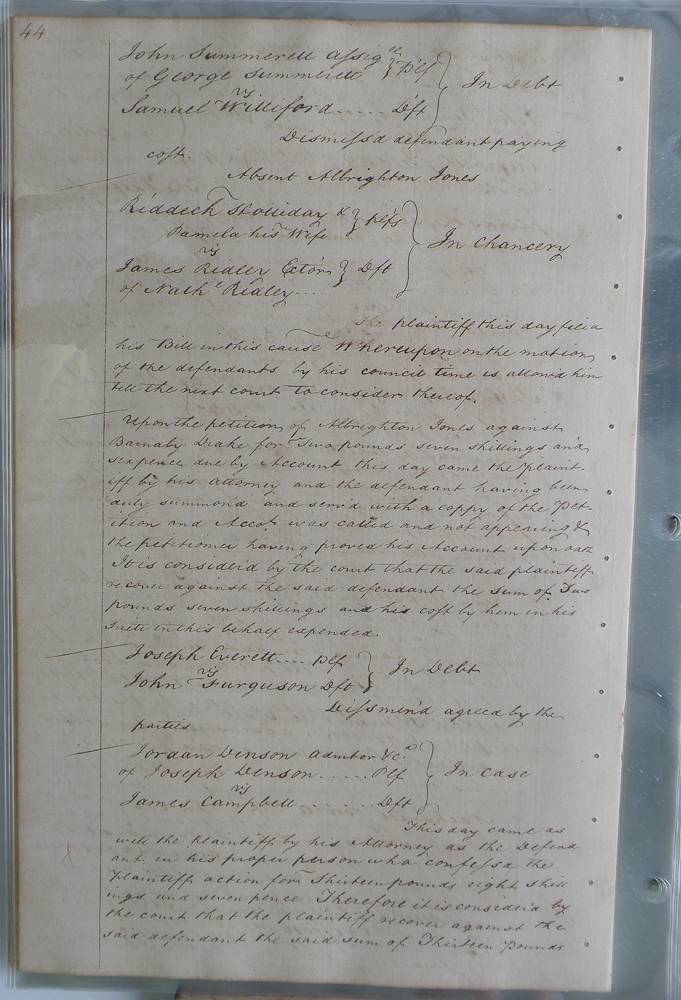 44
John Summerell assigee
of George Summerell } Plf
vs
Samuel Williford ..... Dft
In Debt
Dismissd defendant paying
cost.
Absent Albrighton Jones
Riddech Holliday & } Plfs
Pamela his Wife
vs
James Ridley Extor } Dft
of Nathl Ridley ....
In Chancery
The plaintiff this day filed
his Bill in this cause Whereupon on the motion
of the defendants by his council time is allowd him
till the next court to consider thereof.
Upon the petition of Albrighton Jones against
Barnaby Drake for Two pounds seven shillings and
sixpence due by Account this day came the plaint-
iff by his attorney and the defendant having been
duly summon'd and serv'd with a coppy of the Pet-
ition and Accot. was called and not appearing &
the petitioner having proved his Account upon oath
It is consider'd by the court that the said plaintiff
recover against the said defendant the sum of Two
pounds seven shillings and his cost by him in his
Suite in this behalf expended.
Joseph Everett .... Plf
vs
John Furguson Dft
In Debt
Dissmin'd agreed by the
parties
Jordan Denson admtor &c.
of Joseph Denson ...... Plf
vs
James Campbell ........ Dft
In Case
This day came as
well the Plaintiff by his Attorney as the Defend
ant in his proper person who confessd the
Plaintiffs action for Thirteen pounds eight shill
ings and seven pence Therefore it is consider'd by
the court that the plaintiff recover against the
said defendant the said sum of Thirteen Pounds